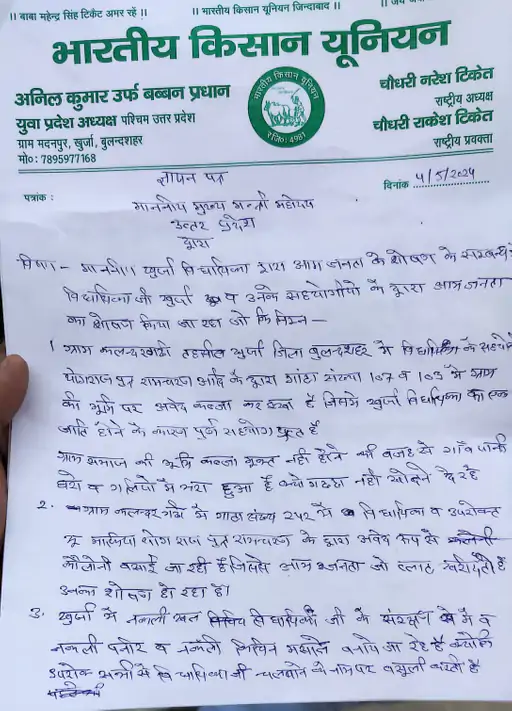 ।। बाबा महेन्द्र सिंह टिकैट अमर रहें ।। ।। भारतीय किसान यूनियन जिन्दाबाद ।। ।। जय
भारतीय किसान यूनियन
अनिल कुमार उर्फ बब्बन प्रधान
युवा प्रदेश अध्यक्ष पश्चिम उत्तर प्रदेश
ग्राम मदनपुर, खुर्जा, बुलन्दशहर
मो०: 7895977168
भारतीय किसान यूनियन
रजि०: 4981
चौधरी नरेश टिकैत
राष्ट्रीय अध्यक्ष
चौधरी राकेश टिकैत
राष्ट्रीय प्रवक्ता
पत्रांक :
दिनांक 4/5/2024
ज्ञापन पत्र
माननीय मुख्य मन्त्री महोदय
उत्तर प्रदेश
द्वारा
विषय - माननीय खुर्जा विधायिका द्वारा आम जनता के शोषण के सम्बन्ध
विधायिका जी खुर्जा व उनके सहयोगीयो के द्वारा आम जनता
का शोषण किया जा रहा जो कि निम्न -
1 ग्राम तहसील खुर्जा जिला बुलन्दशहर में विधायिका के
योगराज पुत्र रामचरण आदि के द्वारा गाटा संख्या 107 व 103 में ग्राम
की भूमि पर अवैध कब्जा कर रखा है जिसमे खुर्जा विधायिका का एक
जाति होने के कारण पूर्ण सहयोग प्राप्त है
ग्राम समाज की भूमि कब्जा मुक्त नही होने की वजह से गाँव पानी
घरो व गलियो में भरा हुआ है नही खोदने दे रहे
2. ग्राम में गाटा संख्या 242 में विधायिका व उपरोक्त
भू माफिया योगराज पुत्र रामचरण के द्वारा अवैध रूप से
कौलोनी बसाई जा रही है जिससे आम जनता जो प्लाट खरीदती है
उनका शोषण हो रहा है।
3. खुर्जा में नकली विधायिका जी के संरक्षण में व
नकली पनीर व नकली मसाले बनाये जा रहे है क्योकि
उपरोक्त सभी से विधायिका जी चलवाने के नाम पर वसूली करती है